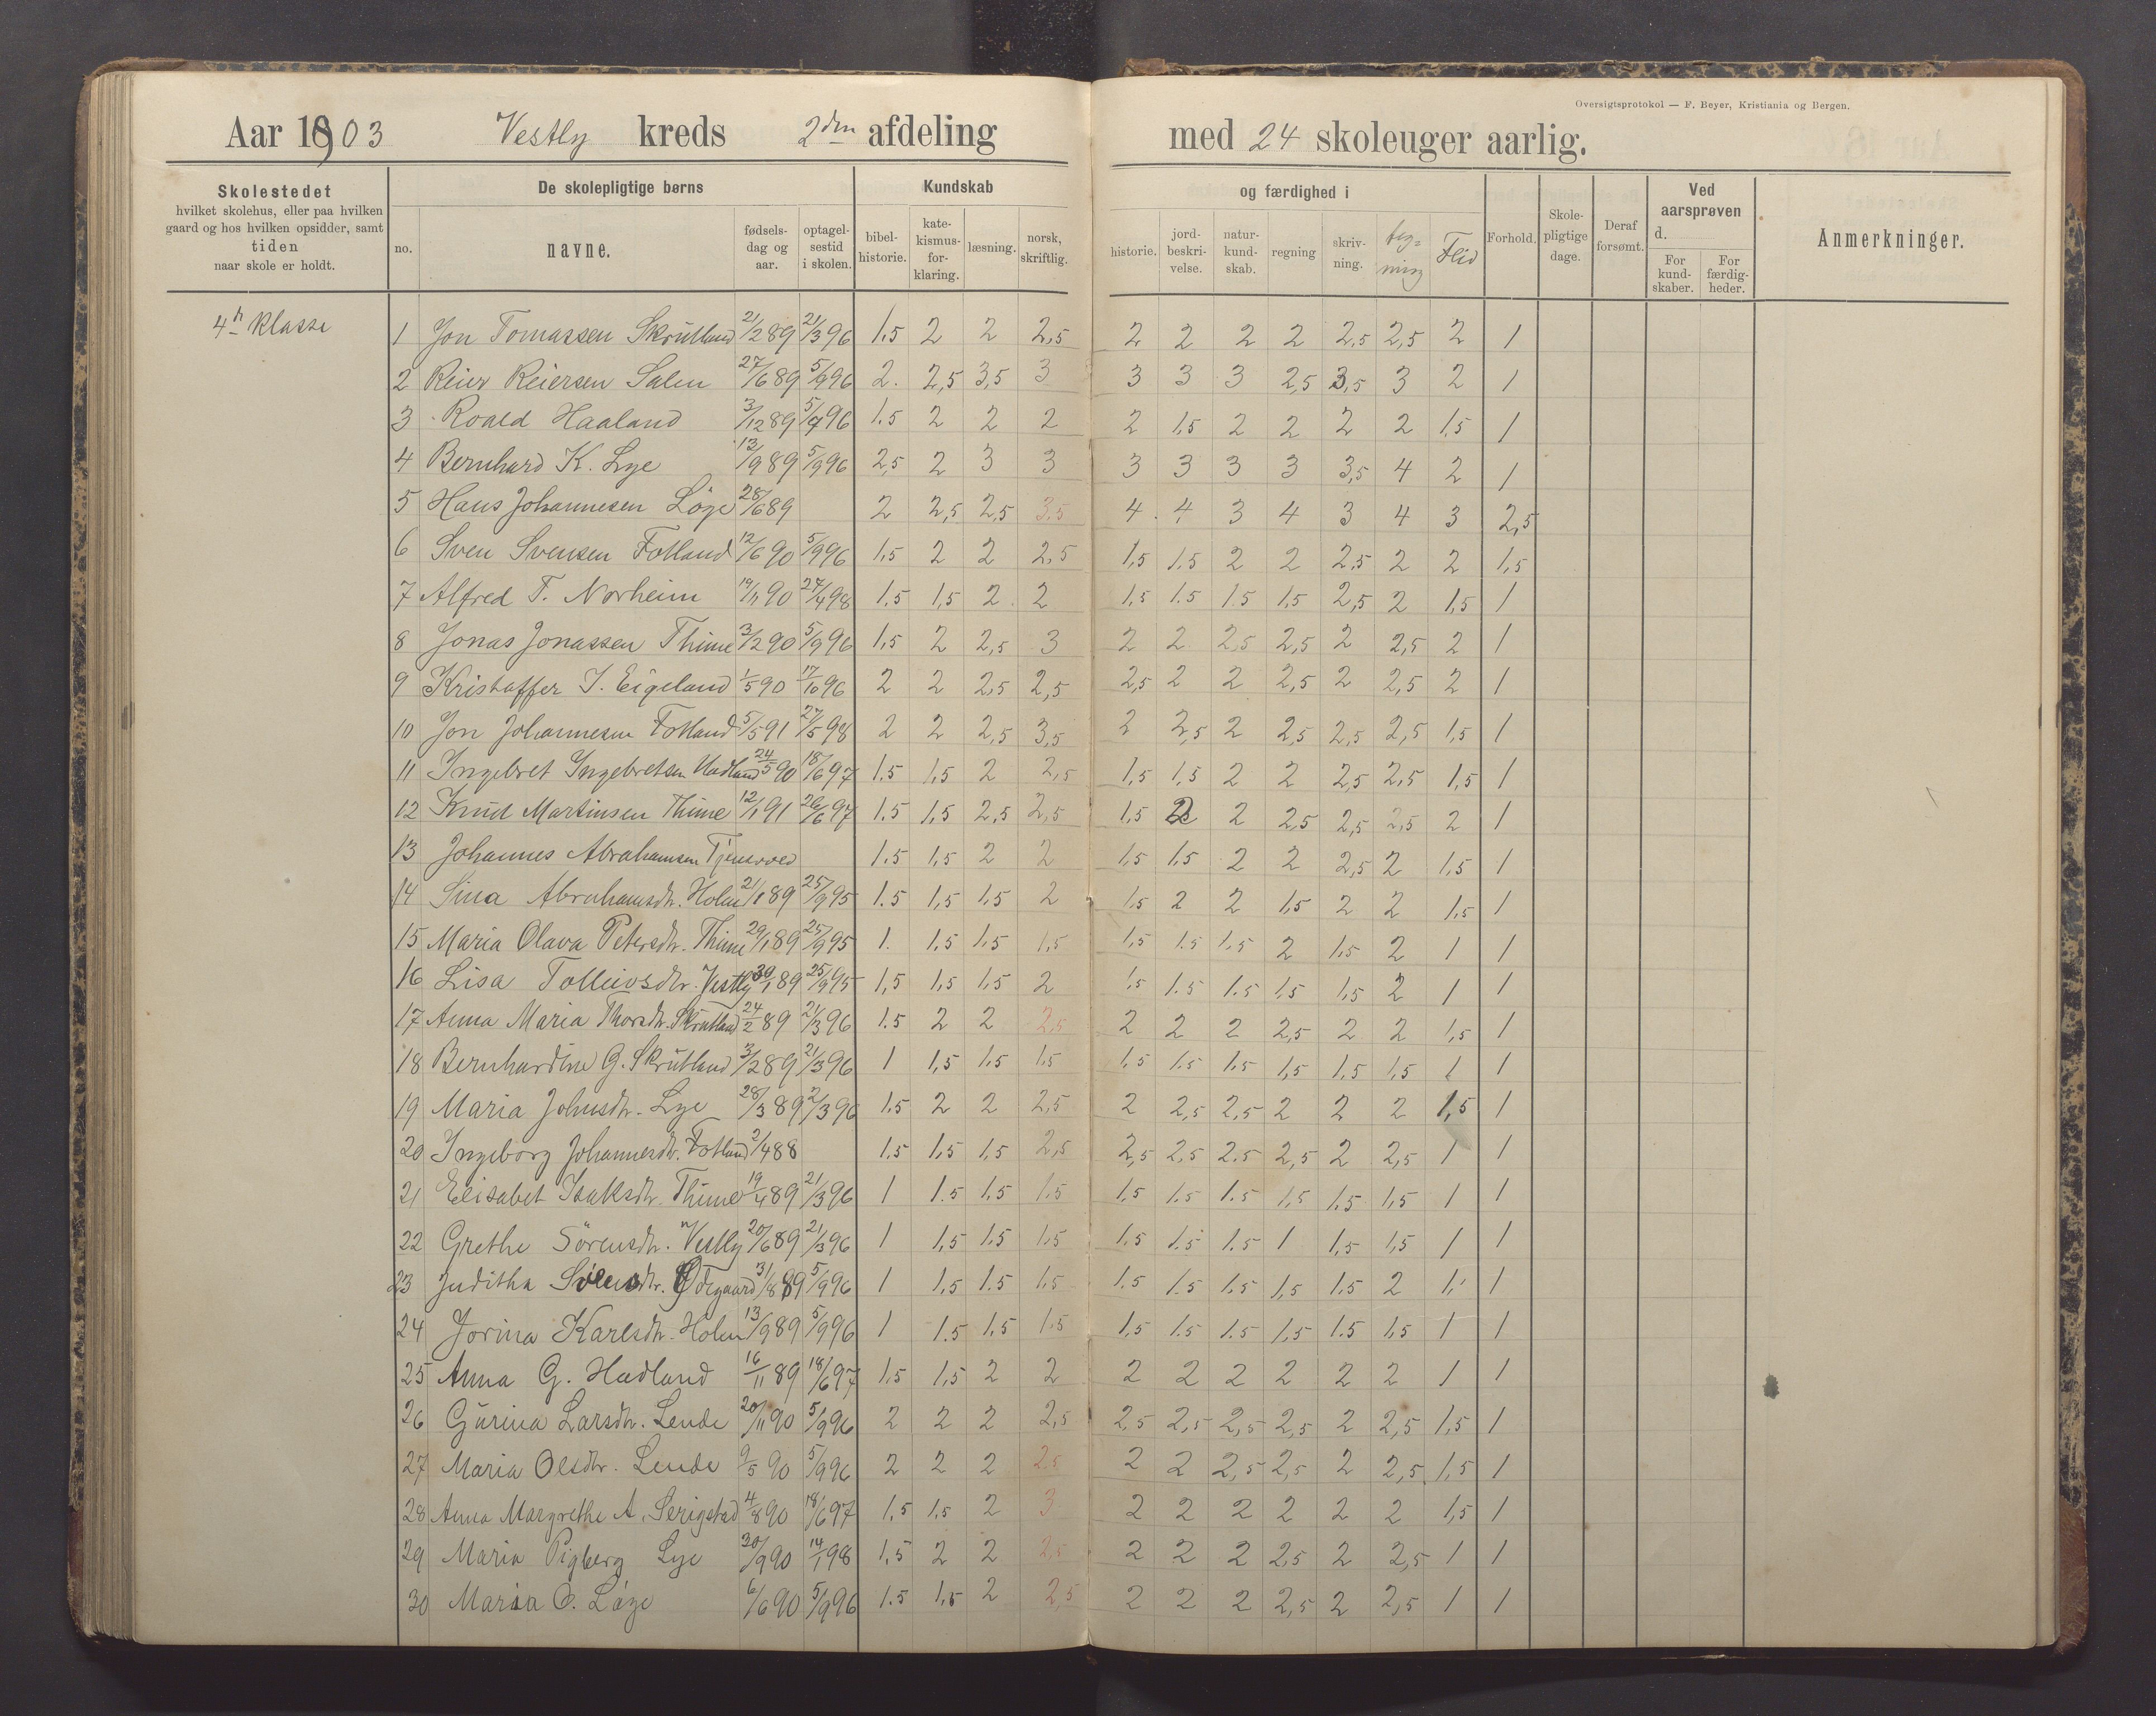 Oversigtsprotokol — F. Beyer, Kristiania og Bergen.
Aar 1903 Vestly kreds 2den afdeling med 24 skoleuger aarlig.
Skolestedet
hvilket skolehus, eller paa hvilken
gaard og hos hvilken opsidder, samt
tiden
naar skole er holdt.
De skolepligtige børns
no. navne. fødsels-dag og aar. optagel-sestid i skolen.
Kundskab og færdighed i
bibel-historie. kate-kismus-for-klaring. læsning. norsk, skriftlig. historie. jord-beskri-velse. natur-kund-skab. regning skriv-ning. teg=ning Flid
Forhold. Skole-pligtige dage. Deraf forsømt.
Ved aarsprøven d.
For kund-skaber. For færdig-heder.
Anmerkninger.
4h Klasse
1 Jon Tomassen Skrutland 21/2 89 21/3 96 1.5 2 2 2,5 2 2 2 2 2,5 2,5 2 1
2 Reier Reiersen Salen 27/6 89 5/9 96 2. 2,5 3,5 3 3 3 3 2,5 3,5 3 2 1
3 Roald Haaland 3/12 89 5/9 96 1.5 2 2 2 2 1,5 2 2 2 2 1,5 1
4 Bernhard K. Lye 13/9 89 5/9 96 2,5 2 3 3 3 3 3 3 3,5 4 2 1
5 Hans Johannesen Löge 28/6 89 2 2,5 2,5 3.5 4 4 3 4 3 4 3 2,5
6 Sven Svensen Fotland 12/6 90 5/9 96 1,5 2 2 2,5 1,5 1.5 2 2 2,5 2 2 1,5
7 Alfred T. Norheim 19/11 90 24/4 98 1.5 1,5 2 2 1,5 1.5 1.5 1,5 2,5 2 1,5 1
8 Jonas Jonassen Thime 3/2 90 5/9 96 1,5 2 2,5 3 2 2 2,5 2,5 2 2,5 2 1
9 Kristoffer I. Eigeland 1/5 90 17/10 96 2 2 2,5 2,5 2,5 2 2 2,5 2 2,5 2 1
10 Jon Johannesen Fotland 5/5 91 27/5 98 2 2 2,5 3,5 2 2,5 2 2,5 2,5 2,5 1,5 1
11 Ingebret Ingebretsen Hadland 24/5 90 18/6 97 1.5 1,5 2 2,5 1,5 1,5 2 2 2,5 2,5 1,5 1
12 Knud Martinsen Thime 12/1 91 26/6 97 1.5 1,5 2,5 2,5 1,5 2 2 2,5 2,5 2,5 2 1
13 Johannes Abrahamsen 1.5 1,5 2 2 1,5 1,5 2 2 2,5 2 1,5 1
14 Sina Abrahamsdtr. Holen 21/1 89 25/9 95 1.5 1,5 1,5 2 1,5 2 2 1,5 2 2 1,5 1
15 Maria Olava Petersdtr. Thime 29/1 89 25/9 95 1. 1,5 1,5 1,5 1,5 1.5 1,5 2 1,5 2 1 1
16 Lisa Tolleivsdtr. Vestly 30/1 89 25/9 95 1,5 1,5 1,5 2 1,5 1.5 1.5 1,5 1,5 2 1 1
17 Anna Maria Thorsdtr. Skrutland 24/2 89 21/3 96 1.5 2 2 2,5 2 2 2 2,5 2 2 1,5 1
18 Bernhardine G. Skrutland 3/2 89 21/3 96 1 1,5 1,5 1,5 1,5 1.5 1.5 1,5 1.5 1,5 1 1
19 Maria Johnsdtr. Lye 28/3 89 21/3 96 1.5 2 2 2,5 2 2,5 2,5 2 2 2 1,5 1
20 Ingeborg Johannesdtr. Fotland 2/4 88 1.5 1,5 1,5 2,5 2,5 2,5 2.5 2,5 2 2,5 1 1
21 Elisabet Isaksdtr. Thime 19/4 89 21/3 96 1 1.5 1,5 1.5 1,5 1.5 1.5 1,5 1.5 1,5 1 1
22 Grethe Sörensdtr. Vestly 20/6 89 21/3 96 1 1,5 1.5 1,5 1.5 1.5 1.5 1 1,5 1,5 1 1
23 Juditha Svensdtr. Ødegaard 31/8 89 5/9 96 1 1,5 1.5 1,5 1.5 1.5 1.5 1,5 1.5 2 1 1
24 Jorina Karlsdtr. Holen 13/9 89 5/9 96 1 1.5 1,5 1.5 1,5 1.5 1.5 1,5 1.5 1,5 1 1
25 Anna G. Hadland 16/11 89 18/6 97 1,5 1,5 2 2 2 2 2 2 2 2 1 1
26 Gurina Larsdtr. Lende 20/11 90 5/9 96 2 2 2 2,5 2,5 2,5 2,5 2,5 2 2,5 1,5 1
27 Maria Olsdtr. Lende 9/5 90 5/9 96 2 2 2 2.5 2 2 2,5 2,5 2 2,5 1,5 1
28 Anna Margrethe A. Serigstad 4/8 90 18/6 97 1,5 1,5 2 3 2 2 2 2 2 2 1,5 1
29 Maria Pigberg Lye 30/9 90 14/1 98 1,5 2 2 2,5 2 2 2 2,5 2 2,5 1 1
30 Maria O. Löge 6/6 90 5/9 96 1.5 1,5 2 2,5 2 2 2 2,5 2 2,5 1 1